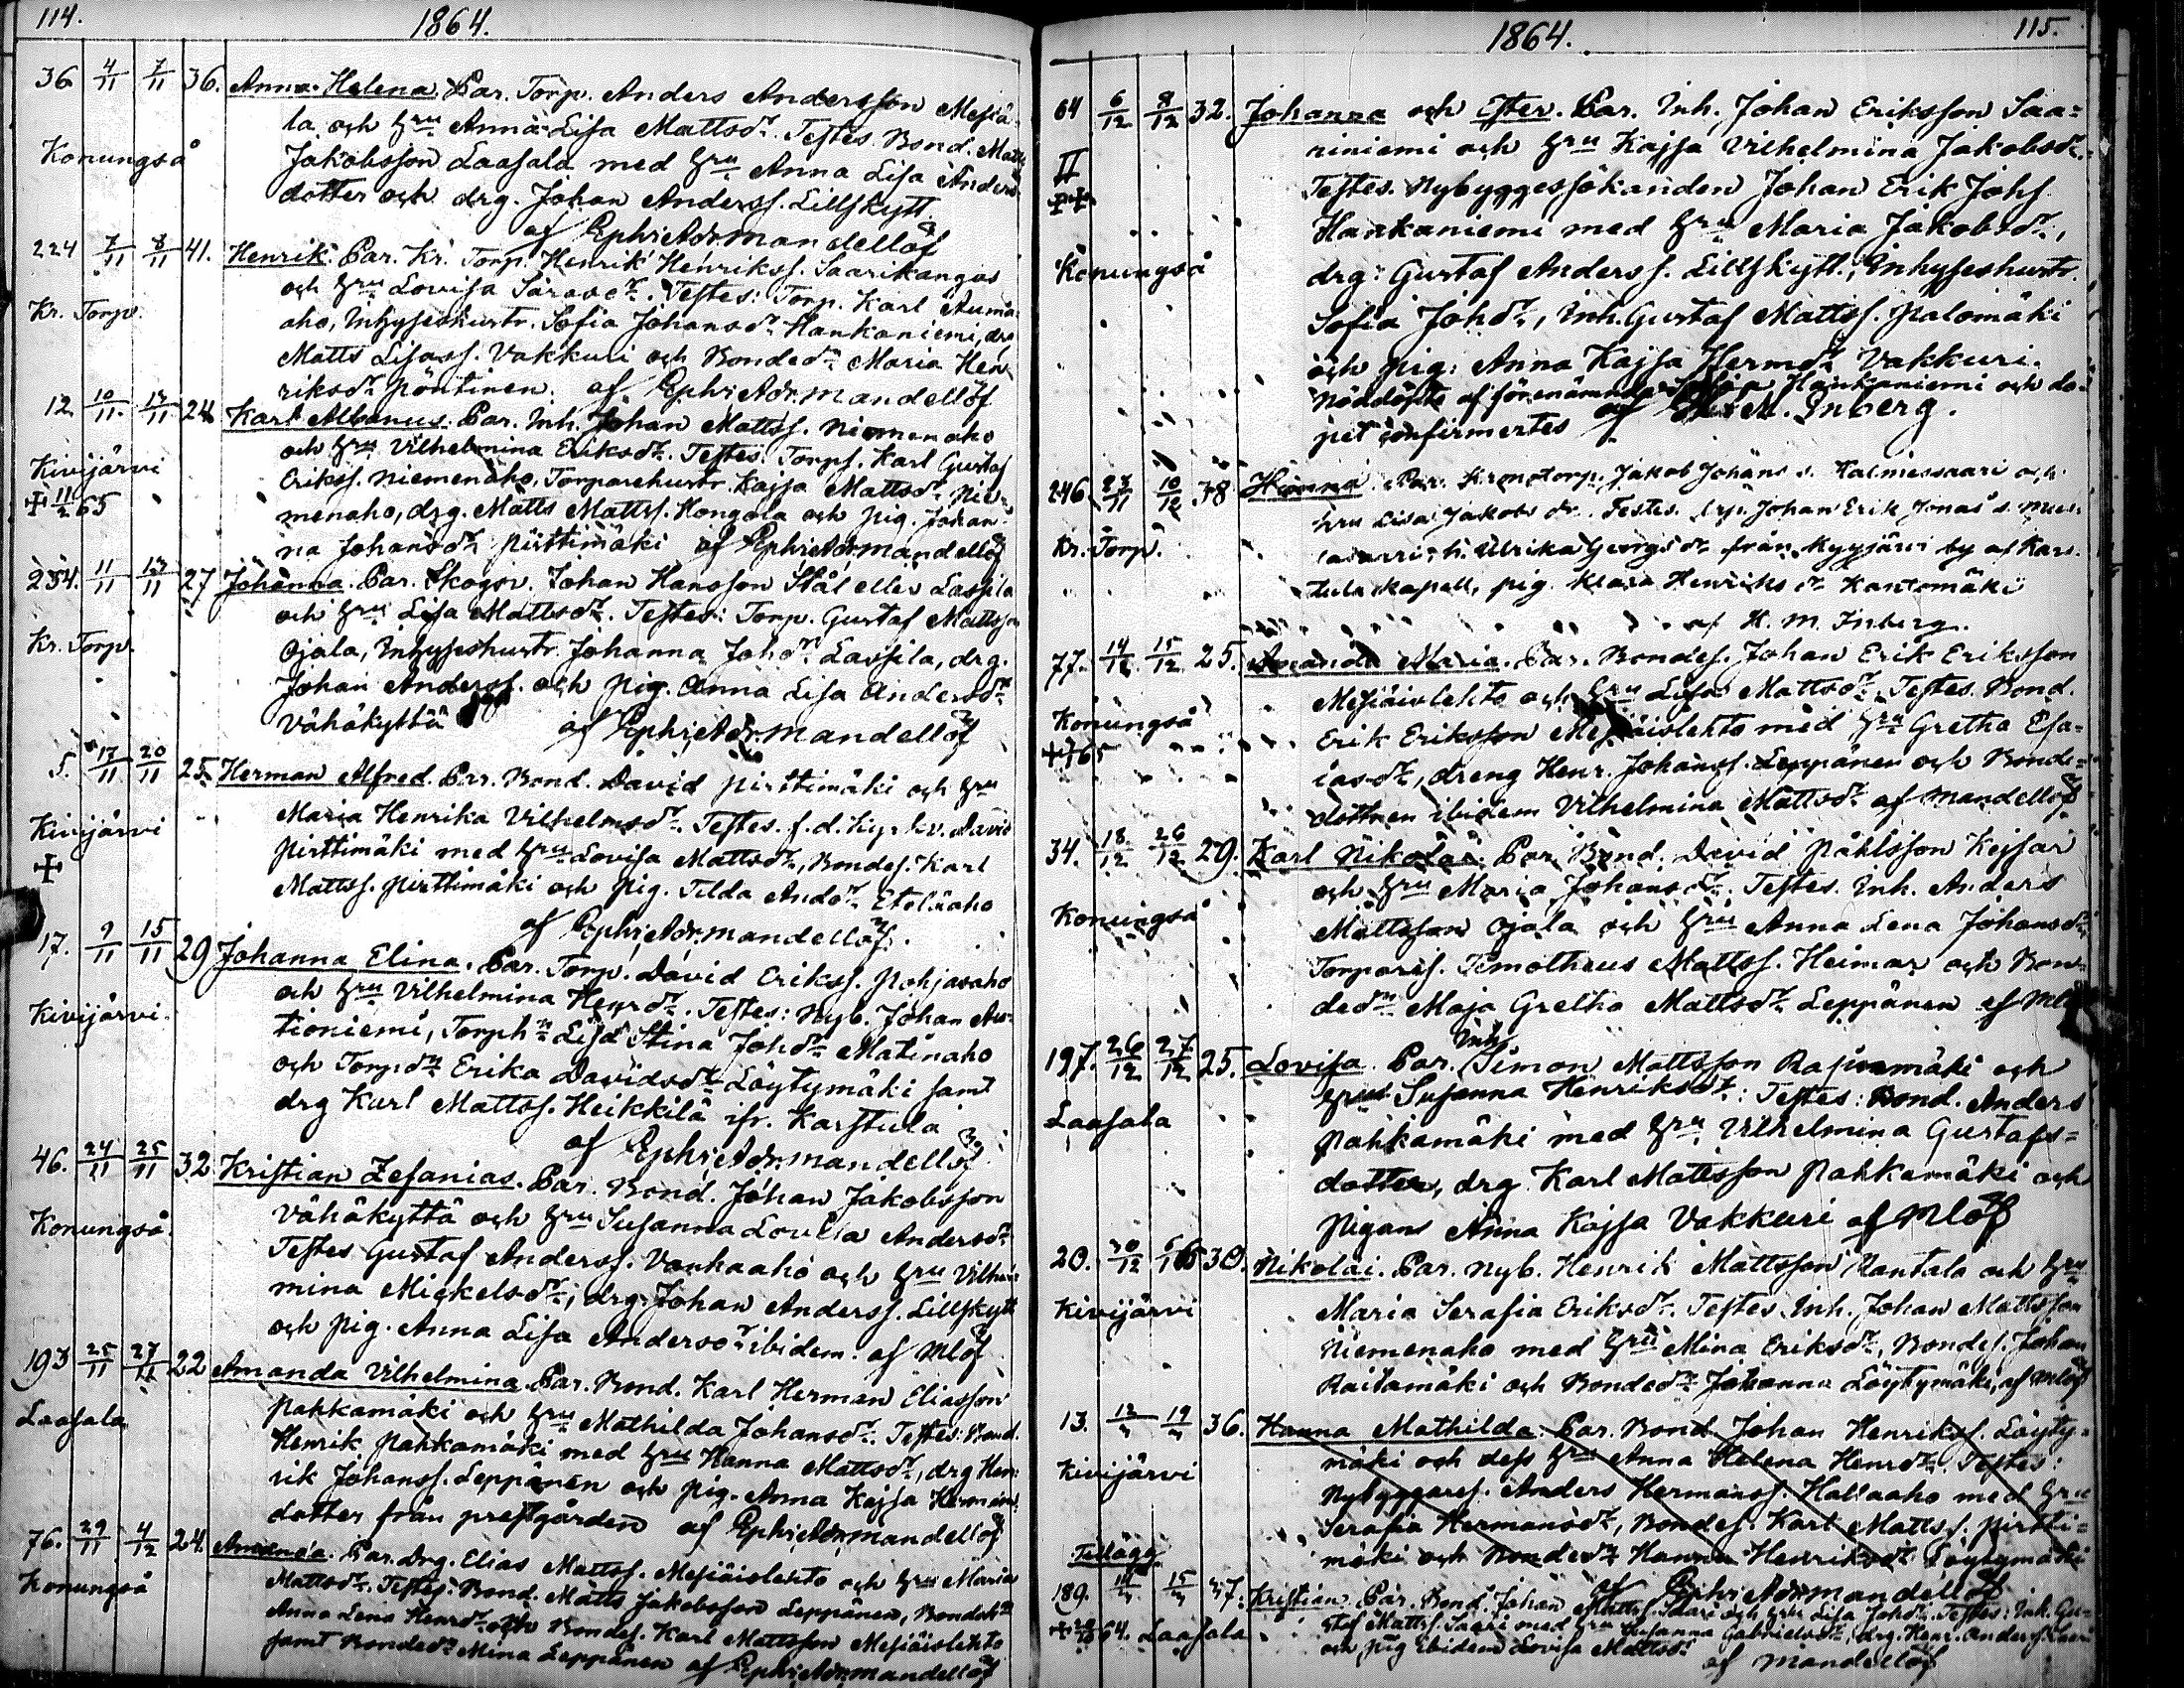 114.
1864.
36 4/11 7/11 36. Anna Helena. Par. Torp. Anders Andersson Mesiä-
la och hru Anna Lisa Mattsdr. Testes. Bond. Matts
Konungså
Jakobsson Laasala med hru Anna Lisa Anders
dotter och drg. Johan Anderss. Lillskytt.
af Ephr. Adr. Mandellöf
224 7/11 8/11 41. Henrik. Par. Kr. Torp. Henrik Henrikss. Saarikangas
och hru Lovisa Sarasdr. Testes: Torp. Karl Auma-
Kr. Torp.
aho, Inhyseshustr. Sofia Johansdr Hankaniemi, drg
Matts Lisass. Vakkuri och Bondedr Maria Hen
riksdr Pöntinen. af Ephr. Adr. Mandellöf
12 10/11 13/11 24 Karl Albanus. Par. Inh. Johan Mattss. Niemenaho
och hru Vilhelmina Eriksdr. Testes. Torps. Karl Gustaf
Kivijärvi
Erikss. Niemenaho, Torparehustr Kajsa Mattsdr Nie-
+ 11/2 65
menaho, drg. Matts Mattss. Hongola och pig. Johan-
na Johansdr Pirttimäki af Ephr. Adr. Mandellöf
234. 11/11 13/11 27 Johanna. Par. Skogsv. Johan Hansson Stål eller Lassila
och hru Lisa Mattsdr. Testes: Torp. Gustaf Mattsson
Kr. Torp.
Ojala, Inhyseshustr. Johanna Johdr Lassila, drg.
Johan Anderss. och pig. Anna Lisa Andersdr
Vähäkyttä af Ephr. Adr. Mandellöf
5. 17/11 20/11 25. Herman Alfred. Par. Bond. David Pirttimäki och hru
Maria Henrika Vilhelmsdr. Testes. f. d. Kyrkv. David
Kivijärvi
Pirttimäki med hru Lovisa Mattsdr, Bondes. Karl
+
Mattss. Pirttimäki och pig. Tilda Andr Eteläaho
af Ephr. Adr. Mandellöf.
17. 9/11 15/11 29 Johanna Elina. Par. Torp. David Erikss. Pohjasaho
och hru Vilhelmina Henrdr. Testes: Nyb. Johan Au-
Kivijärvi.
tioniemi, Torph Lisa Stina Johdr Matinaho
och Torpdr Erika Davidsdr Löytymäki samt
drg Karl Mattss. Heikkilä ifr. Karstula
af Ephr. Adr. Mandellöf.
46. 24/11 25/11 32 Kristian Zefanias. Par. Bond. Johan Jakobsson
Vähäkyttä och hru Susanna Lovisa Andersdr
Konungså.
Testes Gustaf Anderss. Vanhaaho och hru Vilhel-
mina Mickelsdr, drg. Johan Anderss. Lillskytt
och pig. Anna Lisa Andersdr ibidem. af Mlöf
193 25/11 27/11 22 Amanda Vilhelmina. Par. Bond. Karl Herman Eliasson
Pahkamäki och hru Mathilda Johansdr. Testes: Bond.
Laasala
Henrik Pahkamäki med hru Hanna Mattsdr, drg Hen-
rik Johanss. Leppänen och pig. Anna Kajsa Hermans
dotter från prestgården af Ephr. Adr. Mandellöf
76. 29/11 4/12 24. Amanda. Par. Drg. Elias Mattss. Mesiäislehto och hru Maria
Mattsdr. Testes: Bond. Matts Jakobsson Leppänen, Bondeh
Konungså
Anna Lena Henrdr och Bondes. Karl Mattsson Mesiäislehto
samt Bondedr Mina Leppänen af Ephr. Adr. Mandellöf
1864.
115.
64 6/12 8/12 32. Johanna och Ester. Par. Inh. Johan Eriksson Saa-
riniemi och hru Kajsa Vilhelmina Jakobsdr.
II
Testes. Nybyggessökanden Johan Erik Johs
++
Hankaniemi med hru Maria Jakobsdr,
Konungså
drg: Gustaf Anderss. Lillskytt, Inhyseshustr.
Sofia Johdr, Inh. Gustaf Mattss. Palomäki
och pig: Anna Kajsa Hermdr Vakkuri.
Nöddöpte af förenämnda Sofia Hankaniemi och do-
pet confirmertes af H. M. Inberg.
246 23/11 10/12 38 Hanna. Par. Kronotorp. Jakob Johans s. Kalmessaari och
hru Lisa Jakobs dr. Testes. Johan Erik Jonas s.
Kr. Torp.
Ulrika Georgs dr från Kyyjärvi by af Kars-
tula kapell, pig. Klara Henriks dr Kantomäki
af H. M. Inberg.
77. 14/12 15/12 25. Amanda Maria. Par. Bondes. Johan Erik Eriksson
Mesiäislehto och hru Lisa Mattsdr. Testes. Bond.
Konungså
Erik Eriksson Mesiäislehto med hru Gretha Esa-
+ 65
iasdr, dreng Henr. Johanss. Leppänen och Bonde-
dottren ibidem Vilhelmina Mattsdr af Mandellöf
34. 18/12 26/12 29. Karl Nikolai. Par. Bond. David Påhlsson Kejsar
och hru Maria Johansdr. Testes. Inh. Anders
Konungså
Mattsson Ojala och hru Anna Lena Johansdr
Torpares. Timotheus Mattss. Heimar och Bon-
dedr Maja Gretha Mattsdr Leppänen af Mlöf
Inh.
197. 26/12 27/12 25. Lovisa. Par. Simon Mattsson Rasinmäki och
hru Susanna Henriksdr. Testes: Bond. Anders
Laasala
Pahkamäki med hru Vilhelmina Gustafs-
dotter, drg. Karl Mattsson Pahkamäki och
pigans Anna Kajsa Vakkuri af Mlöf
20. 30/12 6/1 30. Nikolai. Par. Nyb. Henrik Mattsson Rantala och hru
Maria Serafia Eriksdr. Testes. Inh. Johan Mattsson
Kivijärvi
Niemenaho med hru Mina Eriksdr, Bondes. Johan
Raitamäki och Bondedr Johanna Löytymäki, af Mlöf
13. 12 19 36. Hanna Mathilda. Par. Bond Johan Henrikss. Löyty-
mäki och dess hru Anna Helena Henrdr. Testes:
Kivijärvi
Nybyggares. Anders Hermanss. Hallaaho med hru
Serafia Hermansdr, Bondes. Karl Mattss. Pirtti-
mäki och Bondedr Hanna Henriksdr Löytymäki
Tillägg
af Ephr. Adr. Mandellöf
189. 15 37. Kristian. Par. Bond. Johan Mattss. Saari och hru Lisa Johdr. Testes: Inh. Gu-
+ 64. Laasala
staf Mattss. Saari med hru Susanna Gabrielsdr, drg. Henr. Anderss. Saari
och pig ibidem Lovisa Mattsdr
af Mandellöf